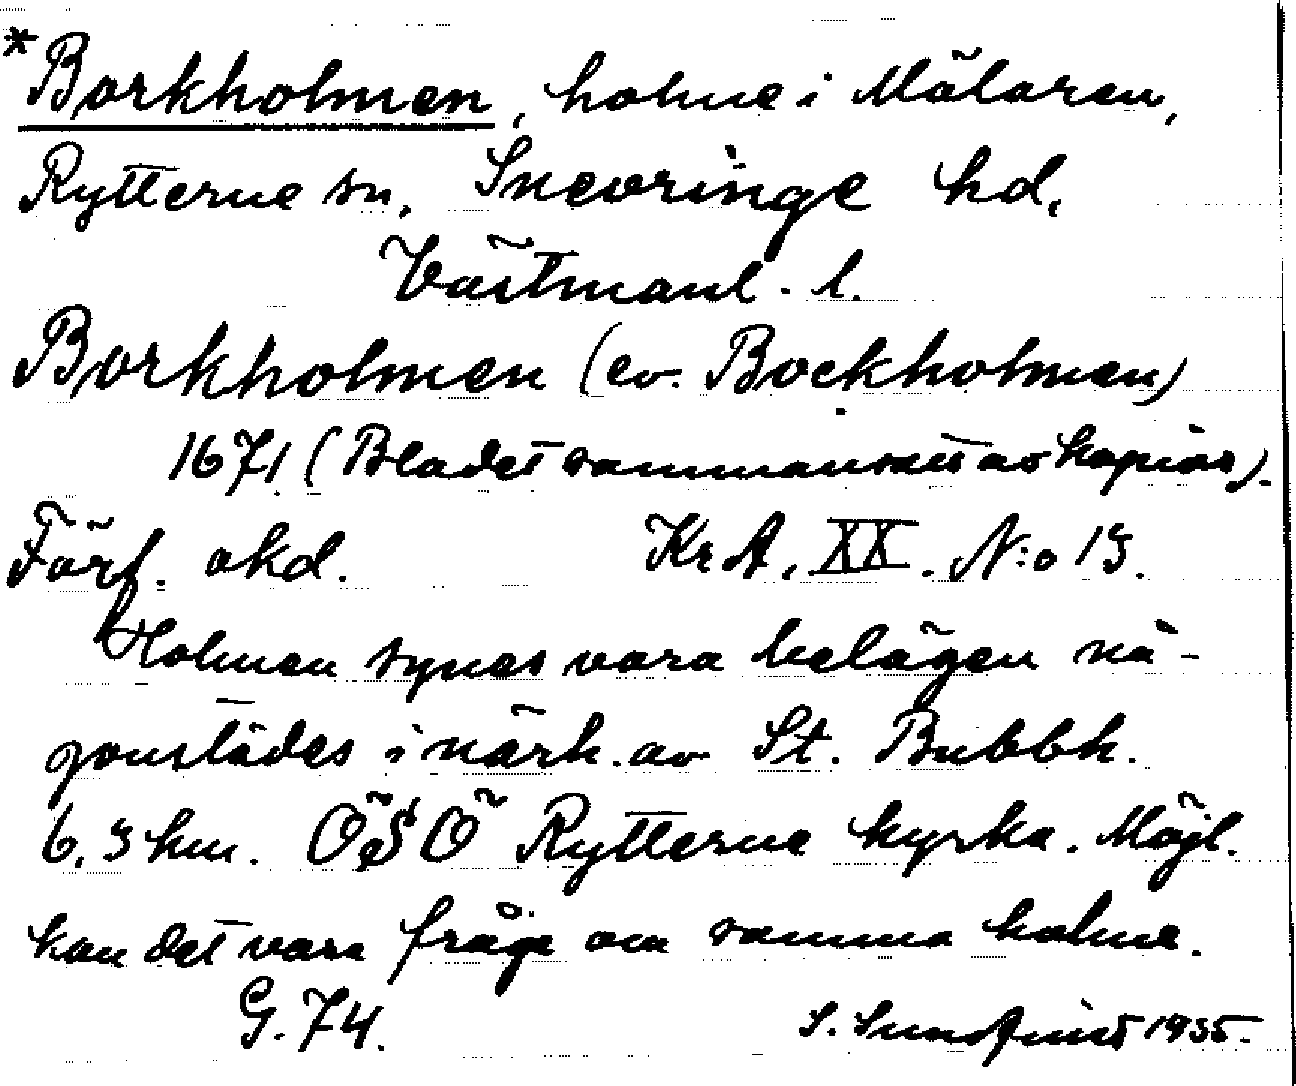 *Borkholmen, holme i Mälaren,
Rytterne sn, Snevringe hd,
Västmanl. l.
Borkholmen (ev. Bockholmen)
1671 (Bladet sammansatt av kopior).
Förf. okd. KrA, XX. N:o 13.
Holmen synes vara belägen nå-
gonstädes i närh. av St. Bubbh.
6,3 km. ÖSÖ Rytterne kyrka. Möjl.
kan det vara fråga om samma holme.
G. 74. S. Sundqvist 1935.